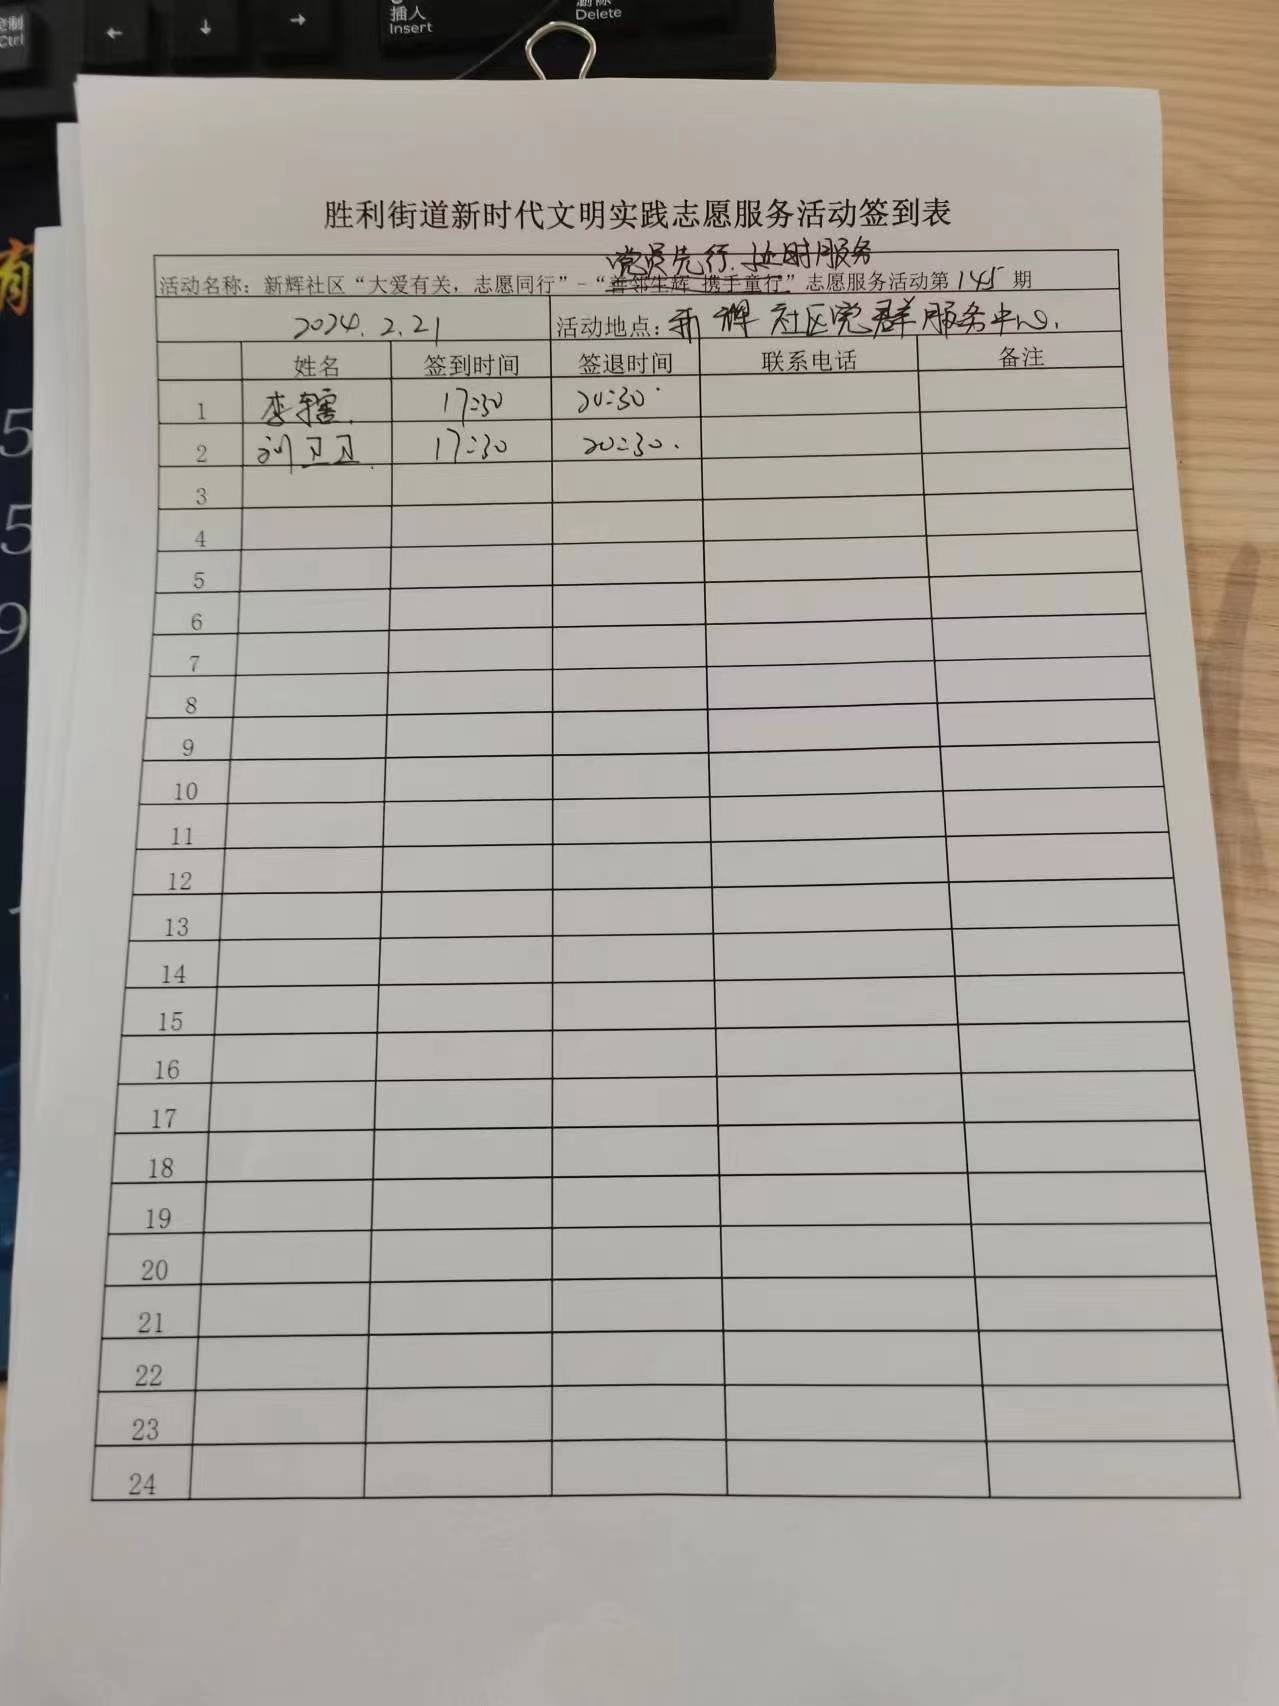 插入
Insert
删除
Delete
Ctrl
←
↓
→
胜利街道新时代文明实践志愿服务活动签到表
党员先行.延时服务
活动名称：新辉社区“大爱有关，志愿同行”-“善邻生辉 携手童行”志愿服务活动第145期
2024.2.21 活动地点：新辉社区党群服务中心.
姓名 签到时间 签退时间 联系电话 备注
1 李辖. 17:30 20:30
2 刘卫卫. 17:30 20:30.
3
4
5
6
7
8
9
10
11
12
13
14
15
16
17
18
19
20
21
22
23
24
5
5
9